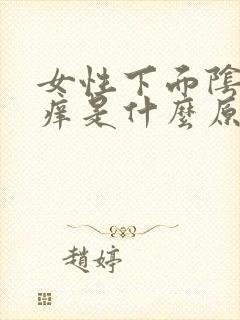 女性下面陰
痒是什麼原
趙婷